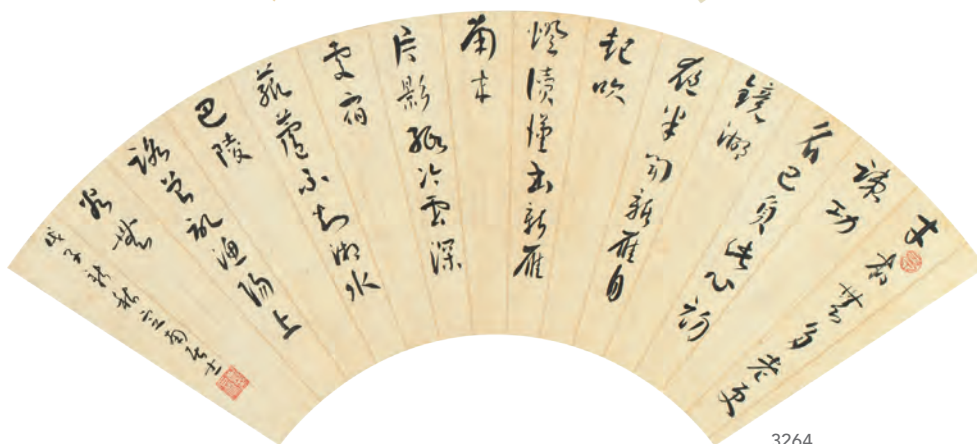 才本無多老更
疎功
名已負此心初
鏡湖
夜半聞新雁自
起吹
燈讀漢書新雁
南來
片影孤冷雲深
處宿
菰蘆不知湖水
巴陵
路曾記漁陽上
谷無
戊子新秋 南居士
3264